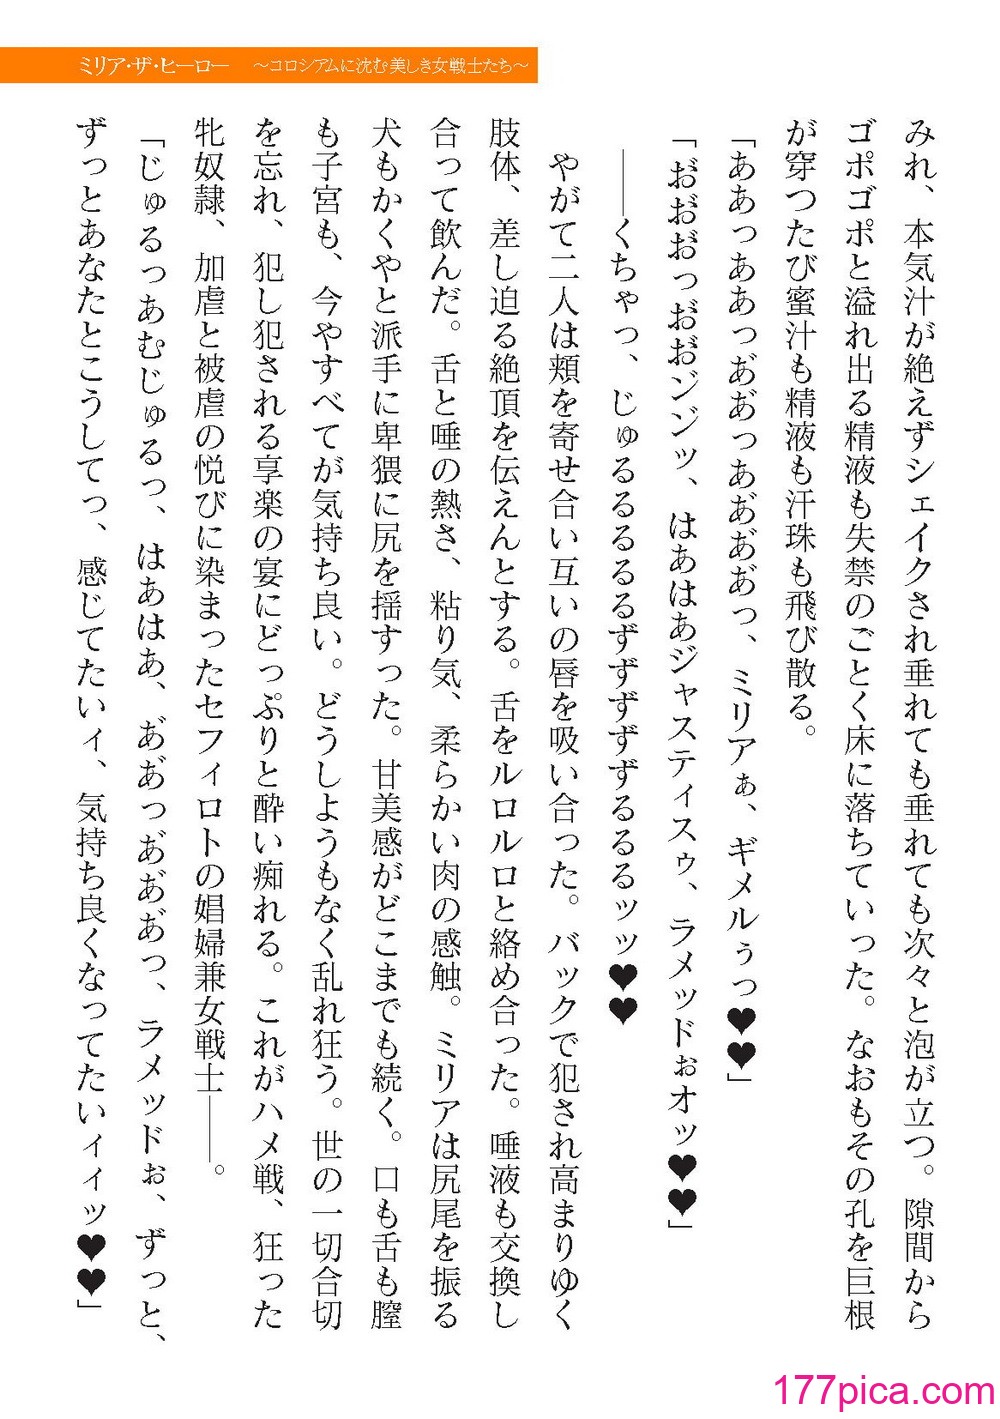 ミリア・ザ・ヒーロー　～コロシアムに沈む美しき女戦士たち～
みれ、本気汁が絶えずシェイクされ垂れても垂れても次々と泡が立つ。隙間から
ゴポゴポと溢れ出る精液も失禁のごとく床に落ちていった。なおもその孔を巨根
が穿つたび蜜汁も精液も汗珠も飛び散る。
「ああっああっあ゙あ゙っああ゙あ゙あ゙っ、ミリアぁ、ギメルぅっ♥♥」
「お゙お゙お゙っお゙お゙ンンッ、はあはあジャスティスゥ、ラメッドぉオッ♥♥」
――くちゃっ、じゅるるるるるずずずずずるるるッッ♥♥
　やがて二人は頬を寄せ合い互いの唇を吸い合った。バックで犯され高まりゆく
肢体、差し迫る絶頂を伝えんとする。舌をルロルロと絡め合った。唾液も交換し
合って飲んだ。舌と唾の熱さ、粘り気、柔らかい肉の感触。ミリアは尻尾を振る
犬もかくやと派手に卑猥に尻を揺すった。甘美感がどこまでも続く。口も舌も膣
も子宮も、今やすべてが気持ち良い。どうしようもなく乱れ狂う。世の一切合切
を忘れ、犯し犯される享楽の宴にどっぷりと酔い痴れる。これがハメ戦、狂った
牝奴隷、加虐と被虐の悦びに染まったセフィロトの娼婦兼女戦士――。
「じゅるっあむじゅるっ、はあはあ、あ゙あ゙っあ゙あ゙あ゙っ、ラメッドぉ、ずっと、
ずっとあなたとこうしてっ、感じてたいィ、気持ち良くなってたいィィッ♥♥」
177pica.com